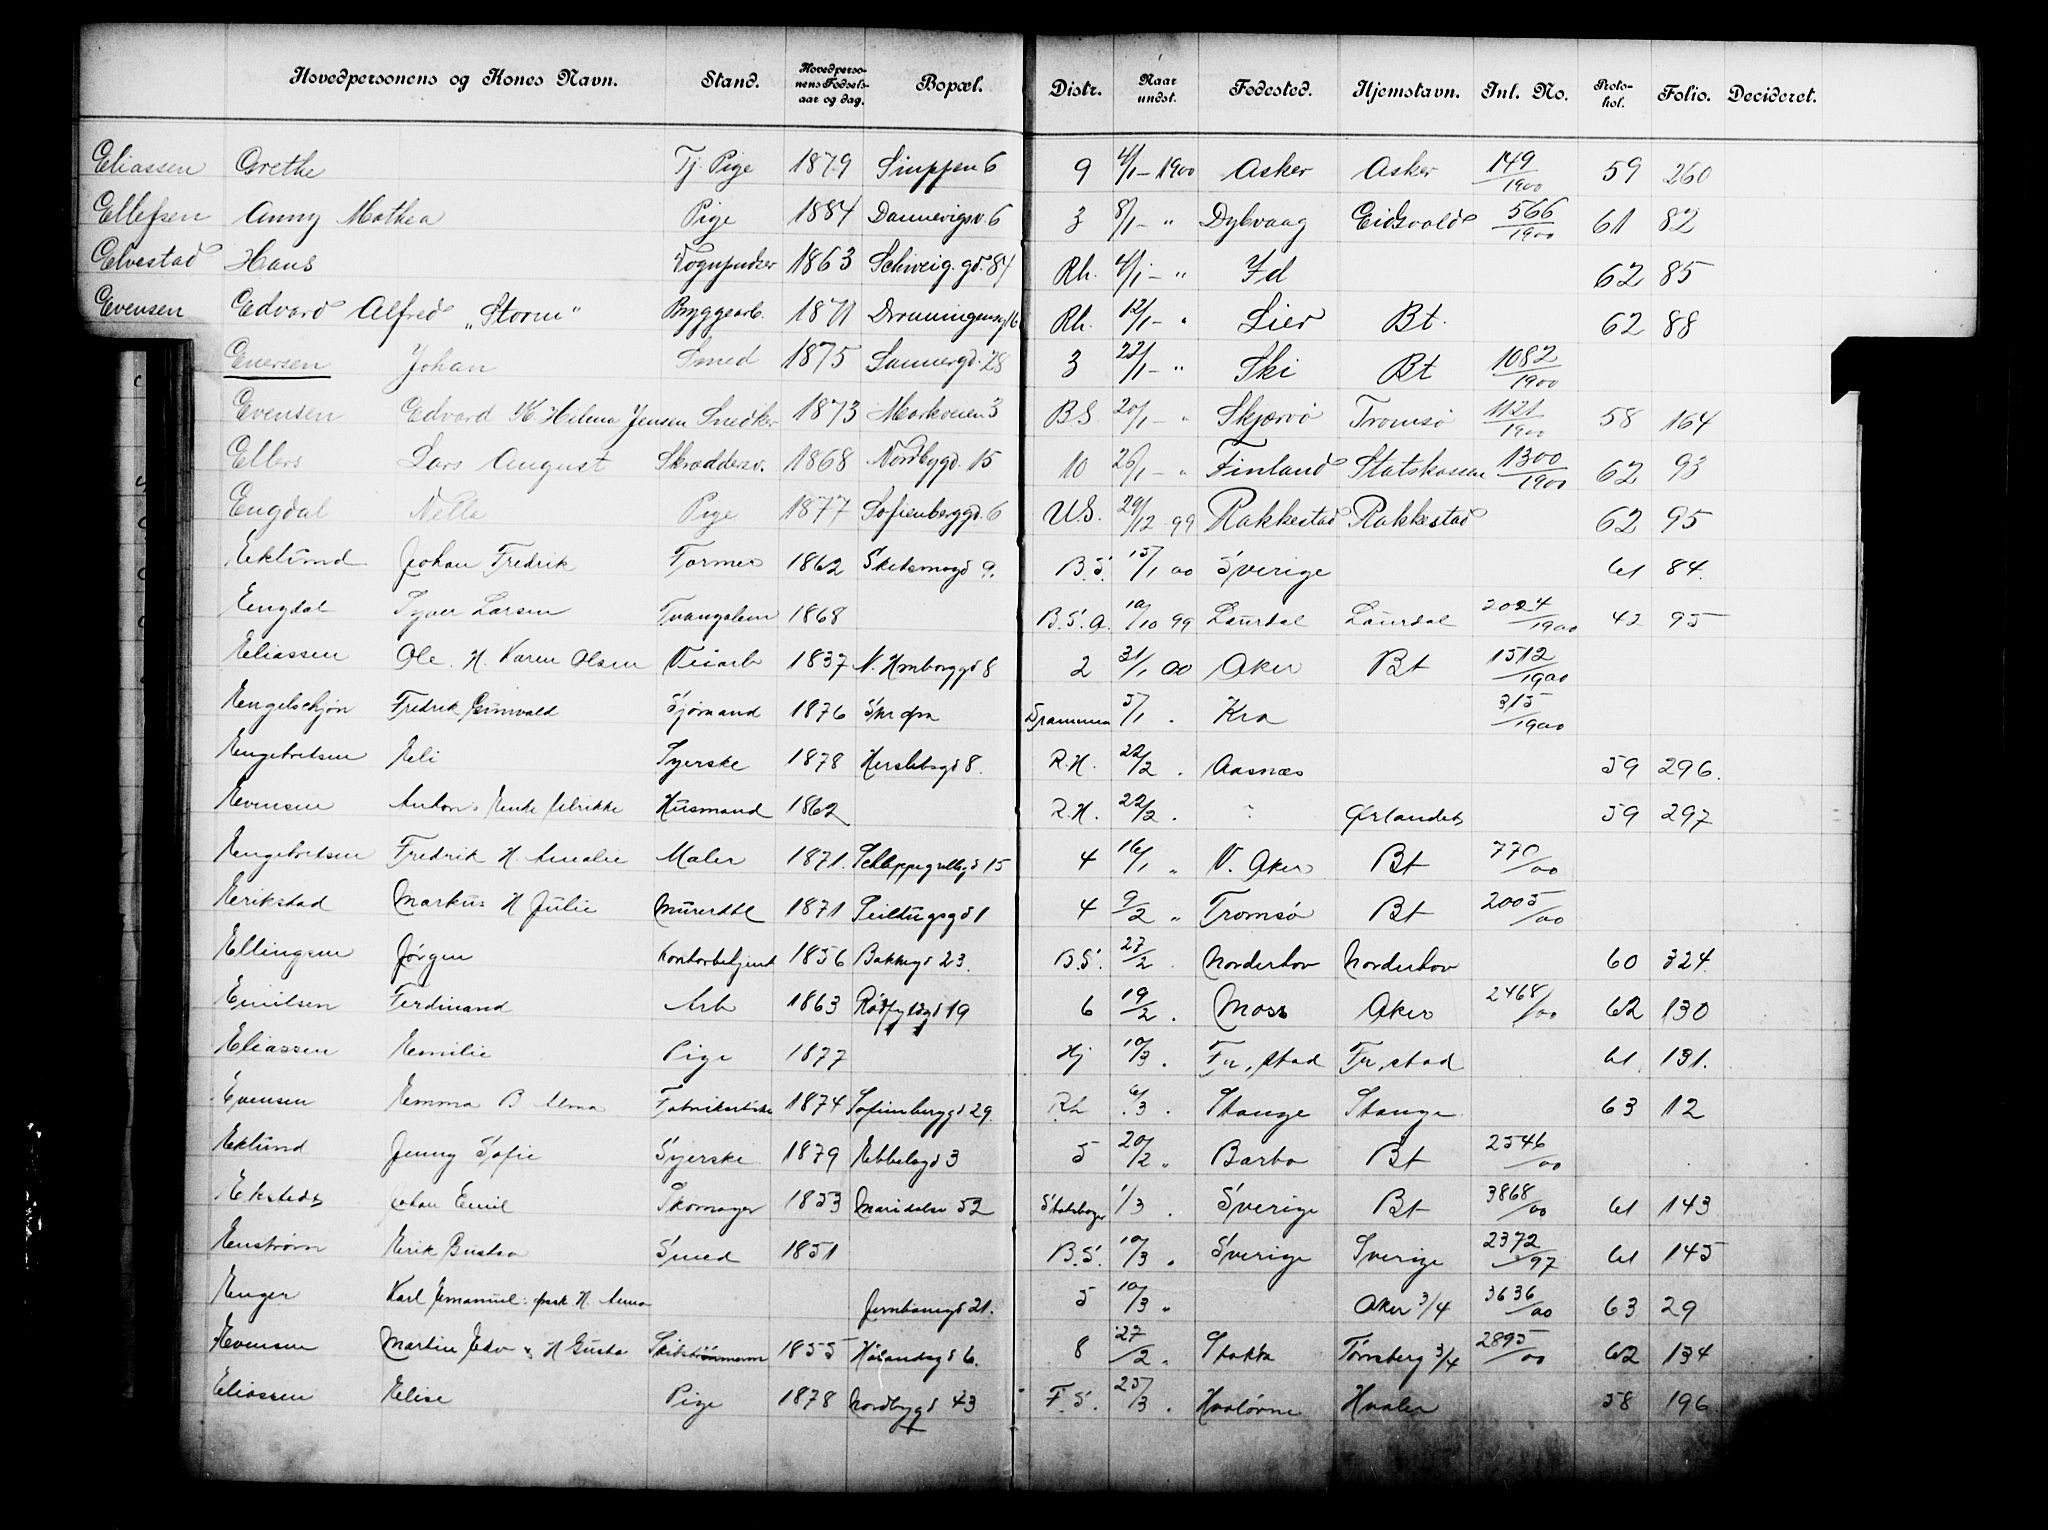 Hovedpersonens og Kones Navn. Stand. Hovedperso-nens Fødsels-aar og dag. Bopæl. Distr. Naar undst. Fødested. Hjemstavn. Int. No. Proto-kol. Folio. Decideret.
Eliassen Grethe Tj. Pige 1879 Sinppen 6 9 4/1 - 1900 Asker Asker 149/1900 59 260
Ellefsen Anny Mathea Pige 1884 Dannevigsv. 6 3 8/1 - " Dybvaag Eidsvold 566/1900 61 82
Elvestad Hans Vognpudser 1863 Schweig. gd. 84 Rh. 4/1 - " Id 62 85
Evensen Edvard Alfred „Storm" Byggearb. 1871 Dronningensg 16 Rh. 12/1 - " Lier Bt. 62 88
Enersen Johan Smed 1875 Sannergd. 28 3 22/1 - " Ski Bt 1082/1900
Evensen Edvard H. Helma Jensen Snedker 1873 Markveien 3 BS. 20/1 - " Skjærvø Tromsø 1121/1900 58 164
Ellers Lars August Skræddersv. 1868 Nordbygd. 15 10 26/1 - " Finland Statskassen 1300/1900 62 93
Engdal Nella Pige 1877 Sofienberggd. 6 U.S. 29/12 99 Rakkestad Rakkestad 62 95
Eklund Johan Fredrik Former 1862 Skedsmogd 9. B.S. 15/1 00 Sverige 61 84.
Engdal Syver Larsen Tvangslem 1868 B.S.A. 10/10 99 Laurdal Laurdal 2024/1900 42 95
Eliassen Ole. H. Karen Olsen Veiarb 1837 N. Hmborggd 8 2 31/1 00 Aker Bt 1512/1900
Engelschjøn Fredrik Grimvald Sjømand 1876 Drammen 5/1 . Kra 315/1900
Engebretsen Eli Syerske 1878 Herslebsgd 8. R.H. 22/2 . Aasnæs 59 296.
Evensen Anton, Enke Ulrikke Husmand 1862 R.H. 22/2 . " Ørlandet 59 297
Engebretsen Fredrik H. Amalie Maler 1871. Schleppegrellsgd 15 4 16/1 " V. Aker Bt 770/00
Erikstad Markus H Julie Murerdtl 1871 Peiltugsgd 1 4 9/2 " Tromsø Bt 2005/00
Ellingsen Jørgen Kontorbetjent 1856 Bakkegd 23. B.S. 27/2 . Norderhov Norderhov 60 324.
Emilsen Ferdinand Arb 1863 Rødfyldgd 19 6 19/2 . Moss Aker 2468/00 62 130
Eliassen Emilie Pige 1877 Hj 10/3 . Fr,stad Fr,stad 61 131.
Evensen Emma B Alma Fabrikarbske 1874 Sofienberggd 29. Rh 6/3 . Stange Stange 63 12
Eklund Jenny Sofie Syerske 1879 Ebbelsgd 3 5 20/2 " Barbo Bt 2546/00
Ekstedt Johan Emil Skomager 1853 Maridalsv 52 Statsborger 1/3 . Sverige Bt 3868/00 61 143
Enstrøm Erik Gustav Smed 1851 B.S. 10/3 . Sverige Sverige 2372/97 61 145
Enger Karl Emanuel: frask. H. Anna Jernbanegd 21. 5 10/3 " Aker 3/4 3636/00 63 29
Evensen Martin Edv & H Gusta Skibstømmerm 1855 Hølandsgd 6. 8 27/2 " Stokke Tønsberg 3/4 2895/00 62 134
Eliassen Elise Pige 1878 Nordbygd 43 F.S. 25/3 . Hvaløerne Hvaler 58 196